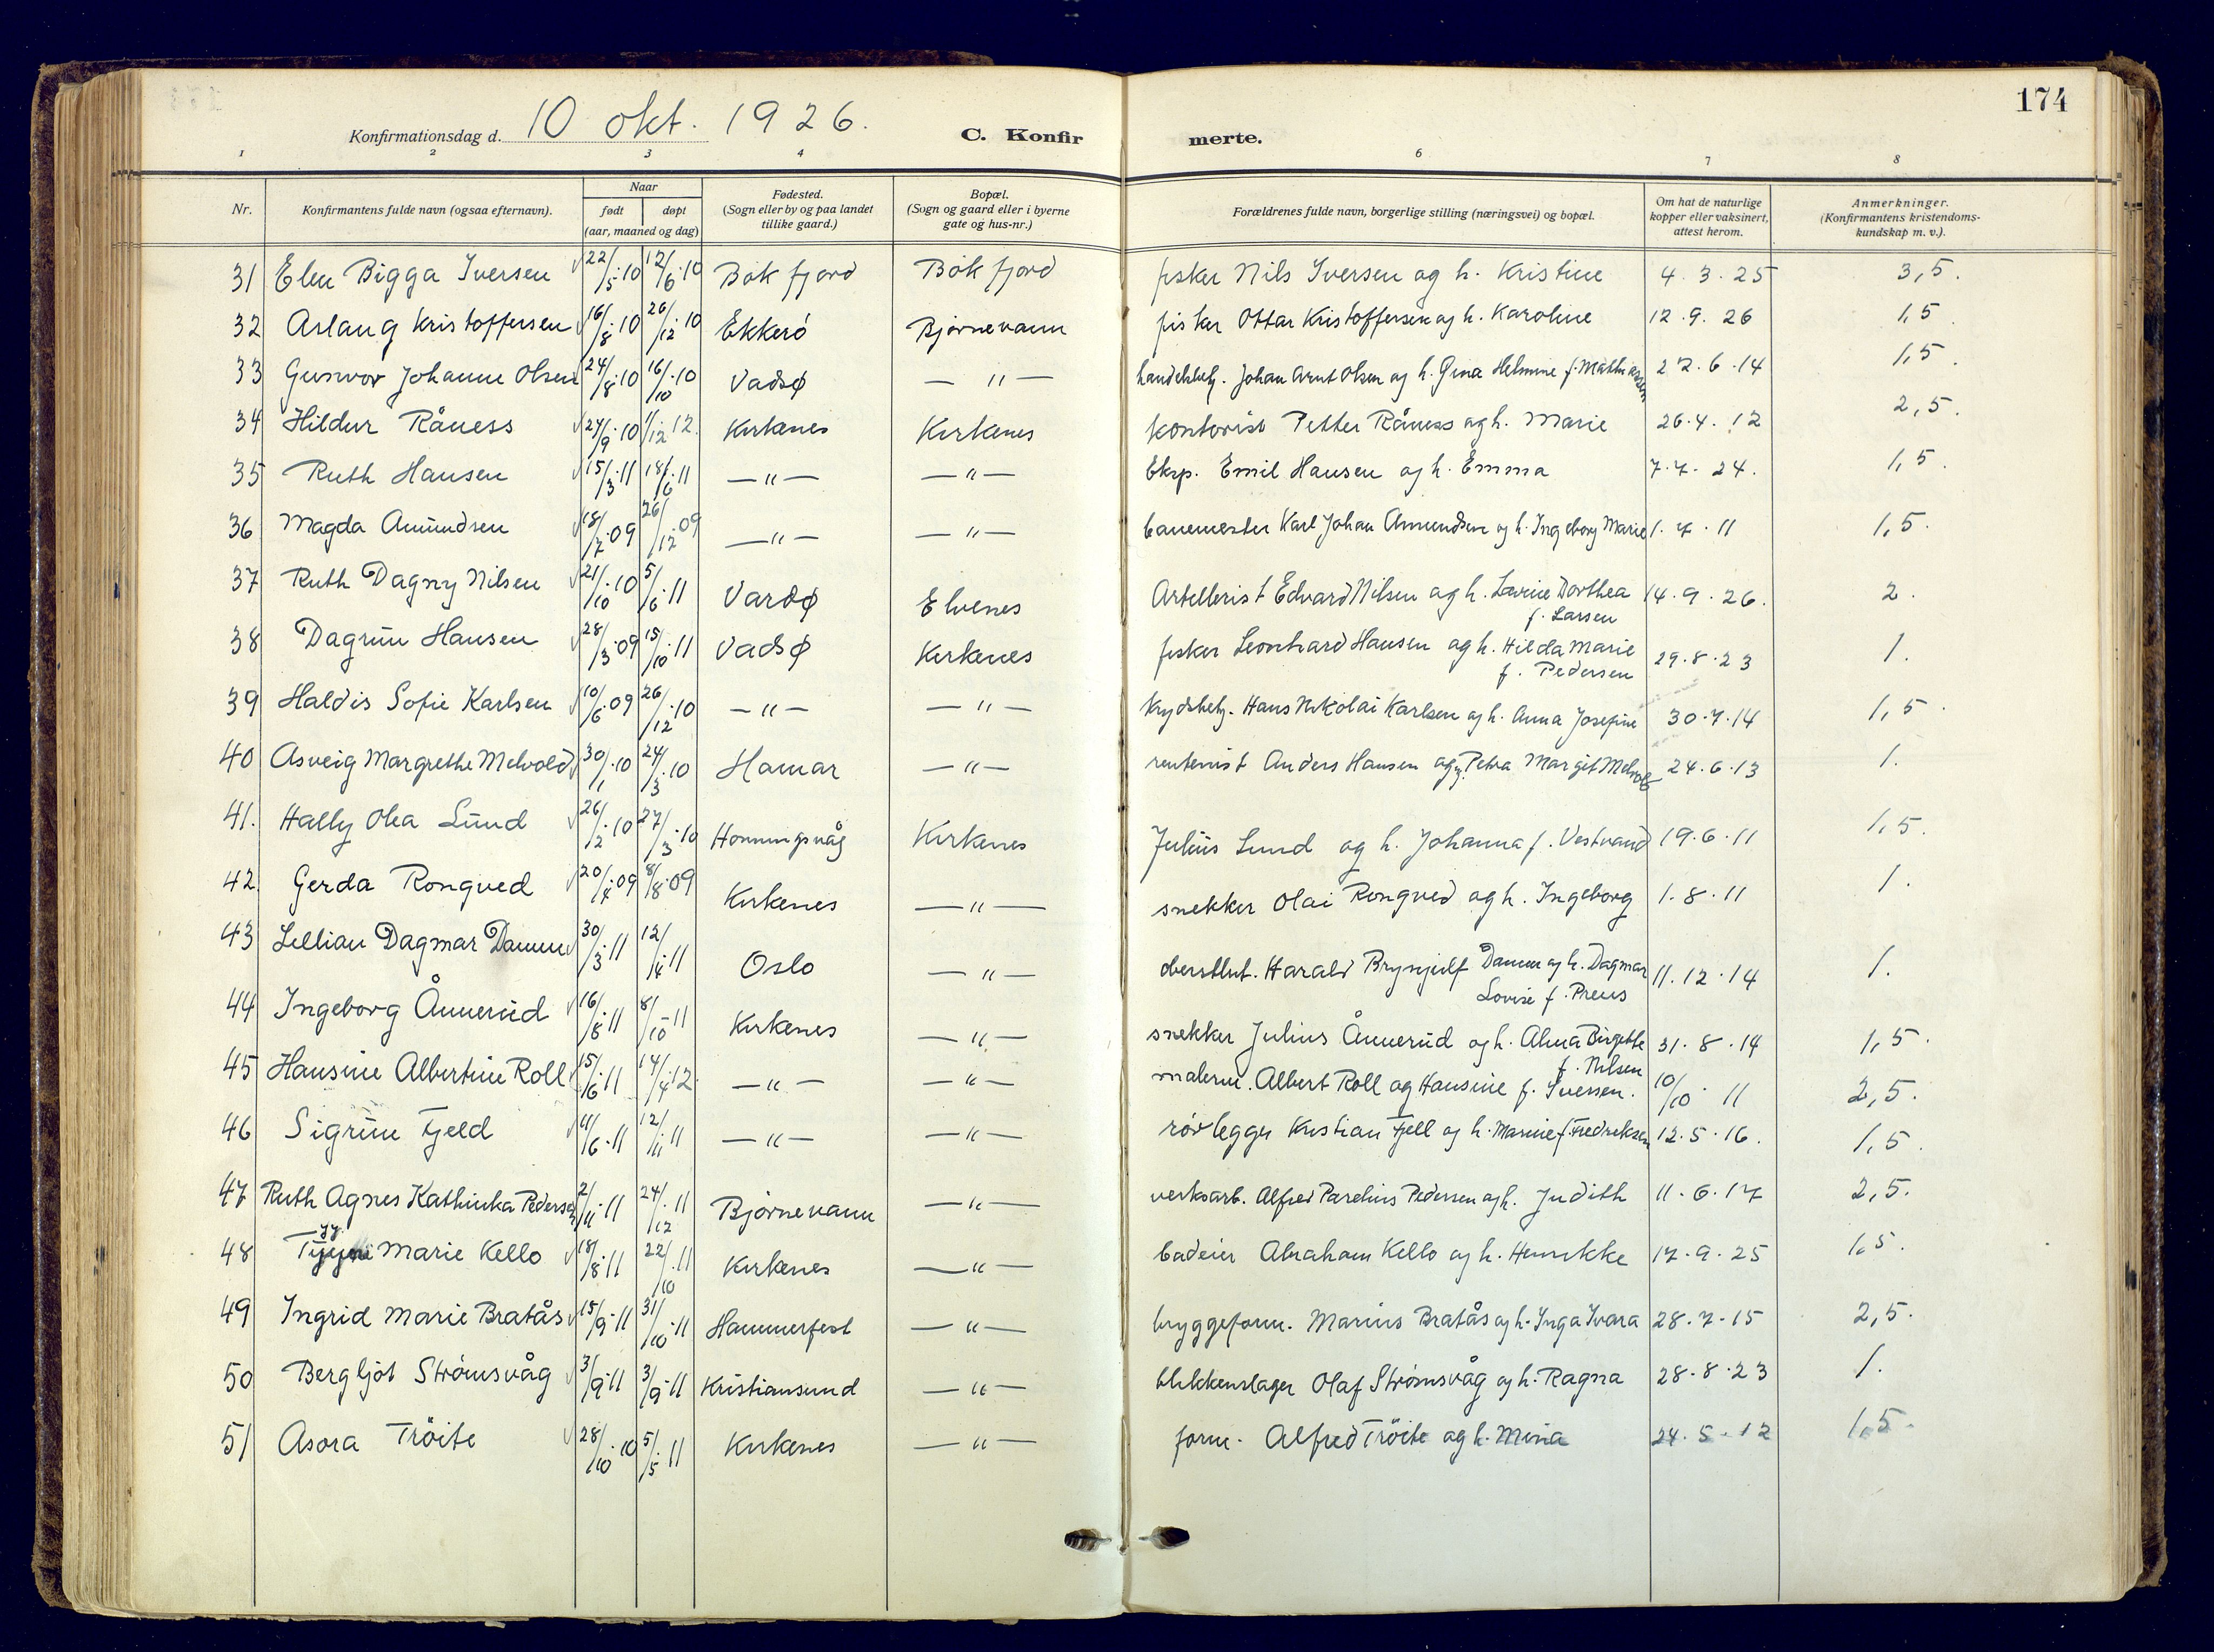 174
Konfirmationsdag d. 10 okt. 1926.
C. Konfirmerte.
1 2 3 4 6 7 8
Nr. Konfirmantens fulde navn (ogsaa efternavn). Naar født døpt (aar, maaned og dag) Fødested. (Sogn eller by og paa landet tillike gaard.) Bopæl. (Sogn og gaard eller i byerne gate og hus-nr.) Forældrenes fulde navn, borgerlige stilling (næringsvei) og bopæl. Om hat de naturlige kopper eller vaksinert, attest herom. Anmerkninger. (Konfirmantens kristendoms-kundskap m. v.).
31 Elen Bigga Iversen 22/5·10 12/6·10 Bøkfjord Bøkfjord fisker Nils Iversen og h. Kristine 4.3.25 3,5.
32 Aslaug Kristoffersen 16/8·10 26/12·10 Ekkerö Bjørnevann fisker Ottar Kristoffersen og h. Karoline 12.9.26 1,5.
33 Gunvor Johanne Olsen 24/8·10 16/10·10 Vadsø — " — handelsbetj. Johan Arnt Olsen og h. Gina Helmine f. Mathiassen 22.6.14 1,5.
34 Hildur Råness 24/9·10 1/12 12. Kirkenes Kirkenes kontorist Petter Råness og h. Marie 26.4.12 2,5.
35 Ruth Hansen 15/3·11 18/6·11 — " — — " — Eksp. Emil Hansen og h. Emma 7.7.24. 1,5.
36 Magda Amundsen 18/7·09 26/12·09 — " — — " — banemester Karl Johan Amundsen og h. Ingeborg Marie 1.7.11 1,5.
37 Ruth Dagny Nilsen 21/10·10 5/6·11 Vardø Elvenes Artillerist Edvard Nilsen og h. Lavine Dorthea f. Larsen 14.9.26. 2.
38 Dagrun Hansen 28/3·09 15/10·11 Vadsø Kirkenes fisker Leonhard Hansen og h. Hilda Marie f. Pedersen 29.8.23 1.
39 Haldis Sofie Karlsen 10/6·09 26/12·10 — " — — " — Hans Nikolai Karlsen og h. Anna Josefine 30.7.14 1,5.
40 Asveig Margrethe Melvold 30/1·10 24/3·10 Hamar — " — rentenist Anders Hansen og Petra Margit 24.6.13 1.
41. Hally Olea Lund 26/2·10 27/3·10 Honningsvåg Kirkenes Julius Lund og h. Johanna f. Vestvand 19.6.11 1,5.
42. Gerda Rongved 20/4·09 8/8·09 Kirkenes — " — snekker Olai Rongved og h. Ingeborg 1.8.11 1.
43 Lillian Dagmar Damm 30/3·11 12/4·11 Oslo — " — oberstlut. Harald Brynjulf Damm og h. Dagmar Lovise f. Preus 11.12.14 1.
44 Ingeborg Ånnerud 16/8·11 8/10-11 Kirkenes — " — snekker Julius Ånnerud og h. Alma Birgitte f. Nilsen 31.8.14 1,5.
45 Hansine Albertine Roll 15/6·11 14/4·12. — " — — " — malerm. Albert Roll og Hansine f. Iversen. 10/10·11 2,5.
46 Sigrun Fjeld 11/6·11 12/11·11 — " — — " — rørlegger Kristian Fjell og h. Marine f. Fredriksen 12.5.16. 1,5.
47 Ruth Agnes Kathinka Pedersen 2/11·11 24/12·11 Bjørnevann — " — verksarb. Alfred Parelius Pedersen og h. Judith 11.6.17 2,5.
48 Marie Kello 18/8·11 22/10·11 Kirkenes — " — badeier Abraham Kello og h. Henrikke 17.9.25 1,5.
49 Ingrid Marie Bratås 15/9·11 31/10·11 Hammerfest — " — bryggeform. Marius Bratås og h. Inga Ivara 28.7.15 2,5.
50 Bergljot Strömsvåg 3/9·11 3/9·11 Kristiansund — " — blikkenslager Olaf Strömsvåg og h. Ragna 28.8.23 1.
51 Asora Tröite 28/10·10 5/5·11 Kirkenes — " — form. Alfred Tröite og h. Mina 24.5.12 1,5.